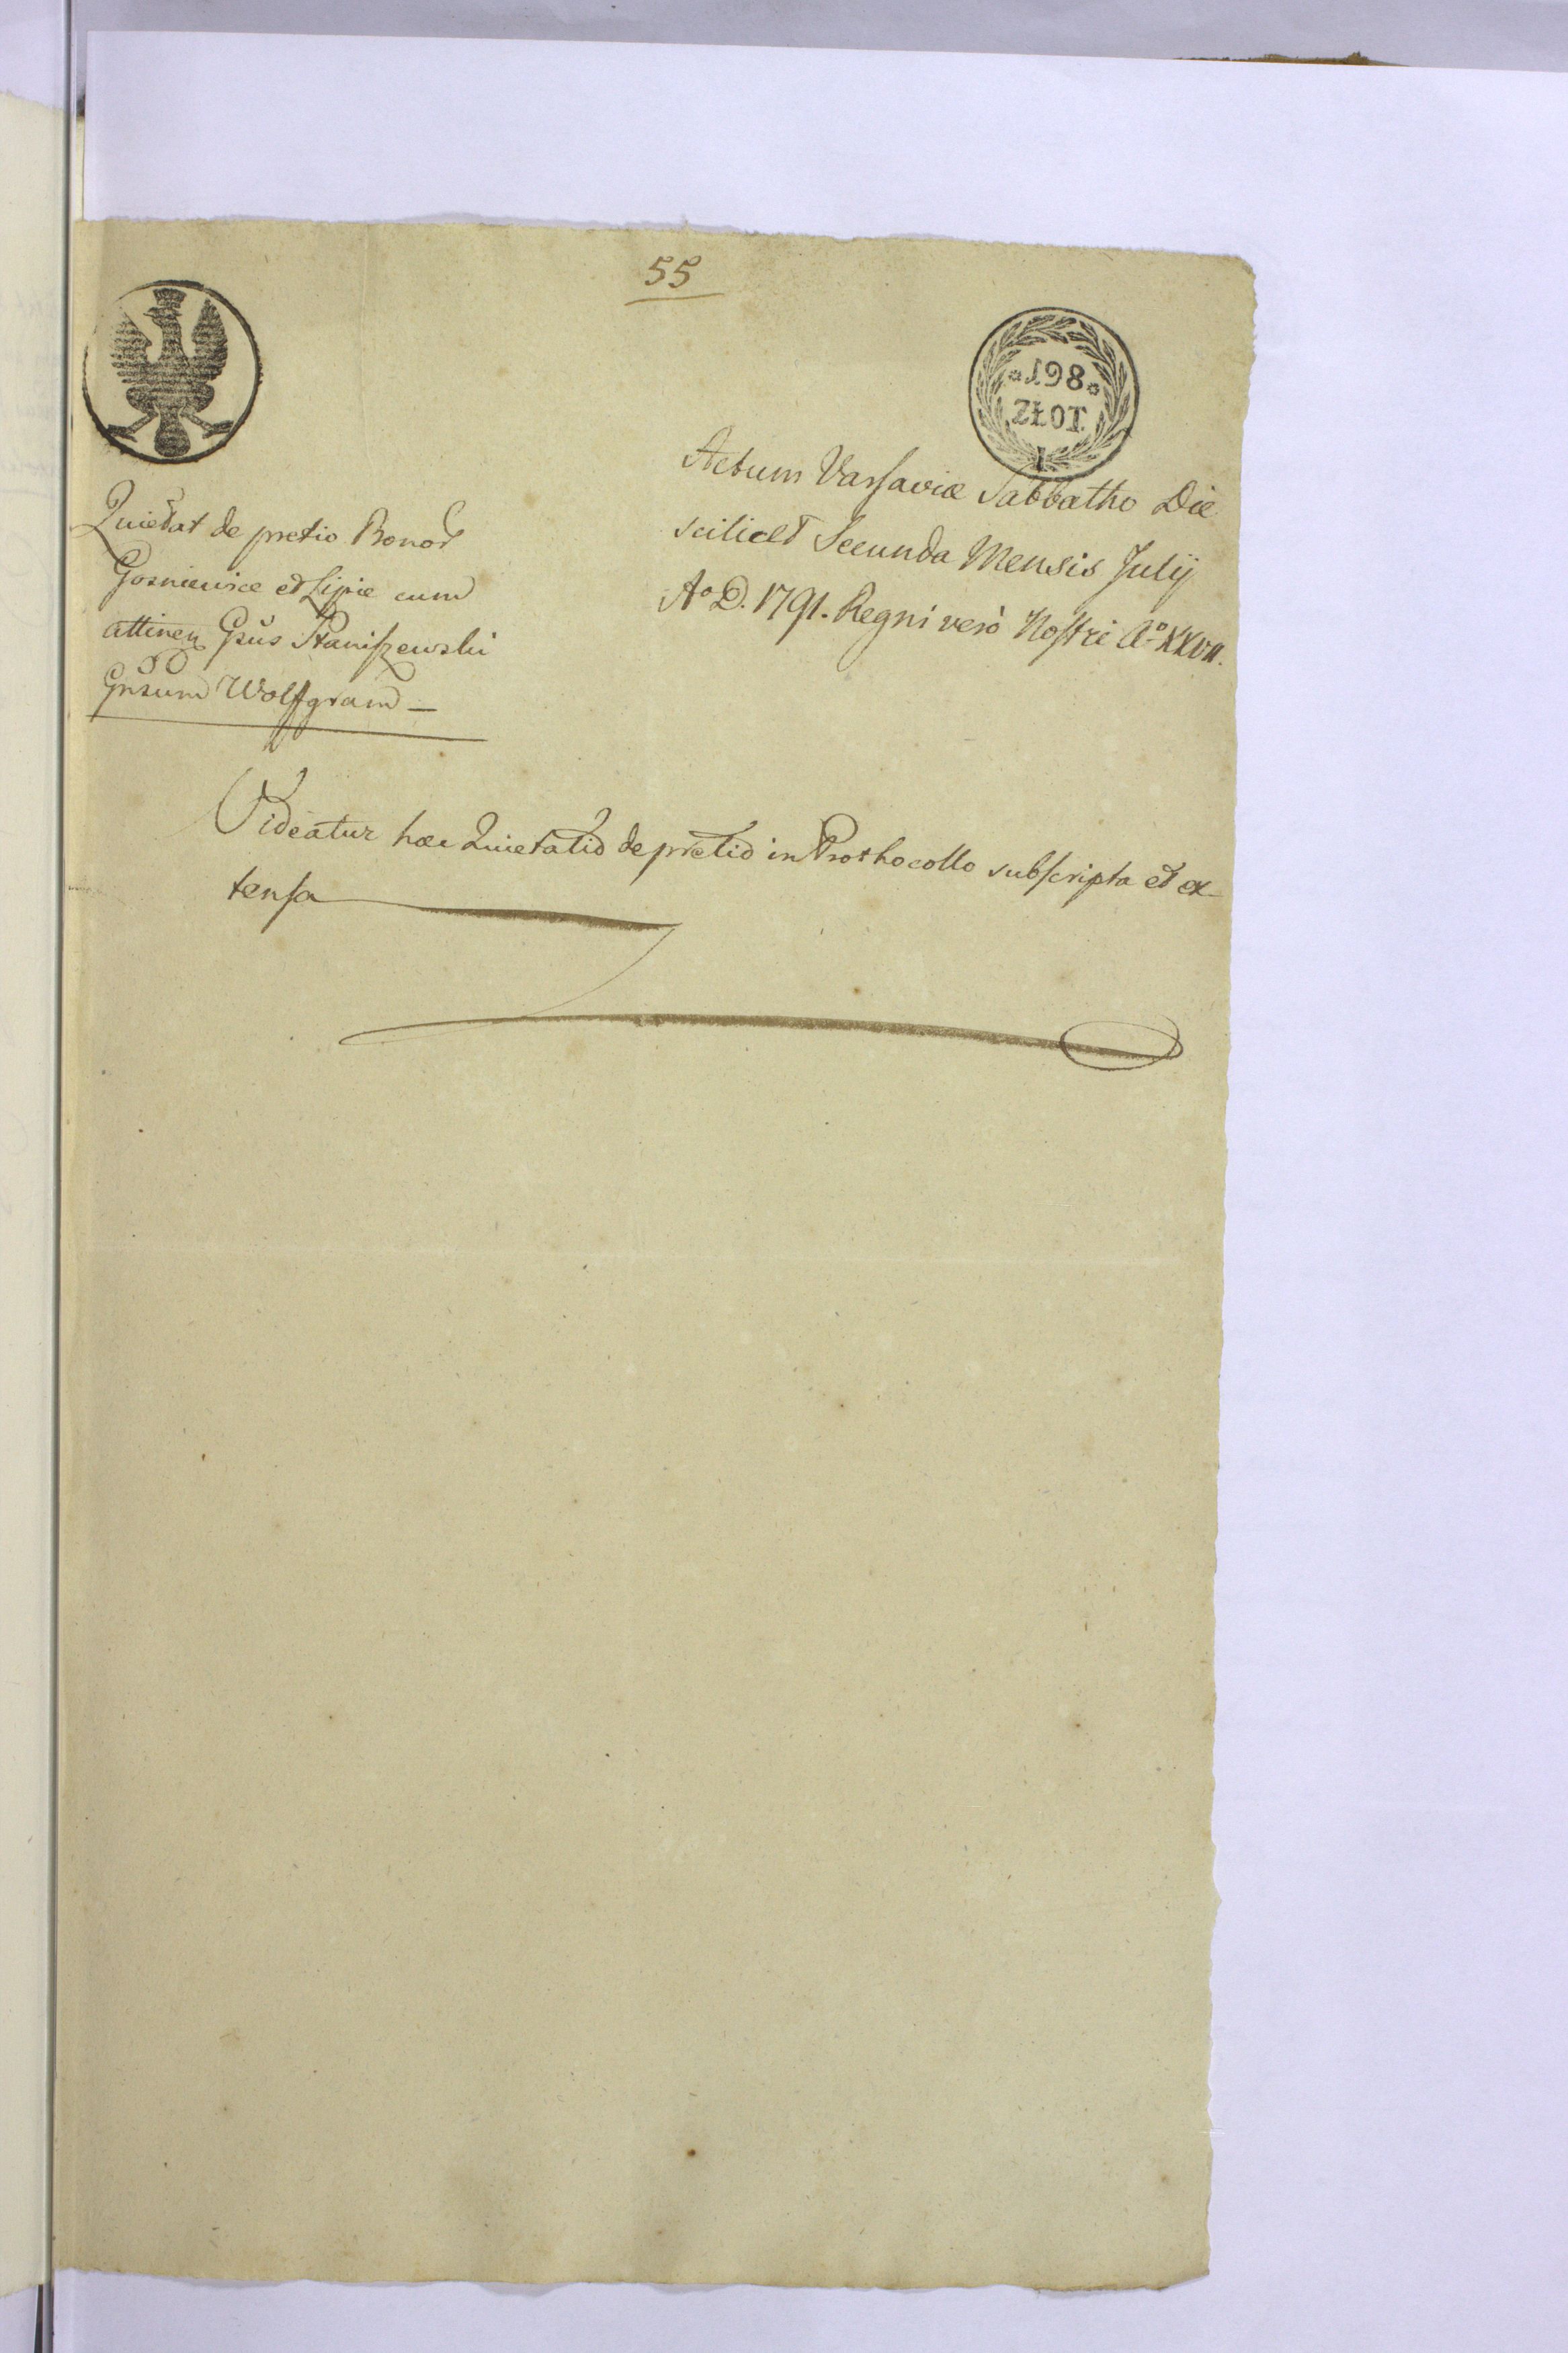 55
198
ZŁOT
Actum Varsaviæ Sabbatho Die
scilicet Secunda Mensis Julij
Aº D. 1791. Regni verò Nostri Aº XXVII.
Quietat de pretio Bonor
Gosniewice et Lipie cum
attinen Gsus Staniszewski
Gnsum Wolffgram —
Videatur hæc Quietatio de pretio in Prothocollo subscripta et ex-
tensa